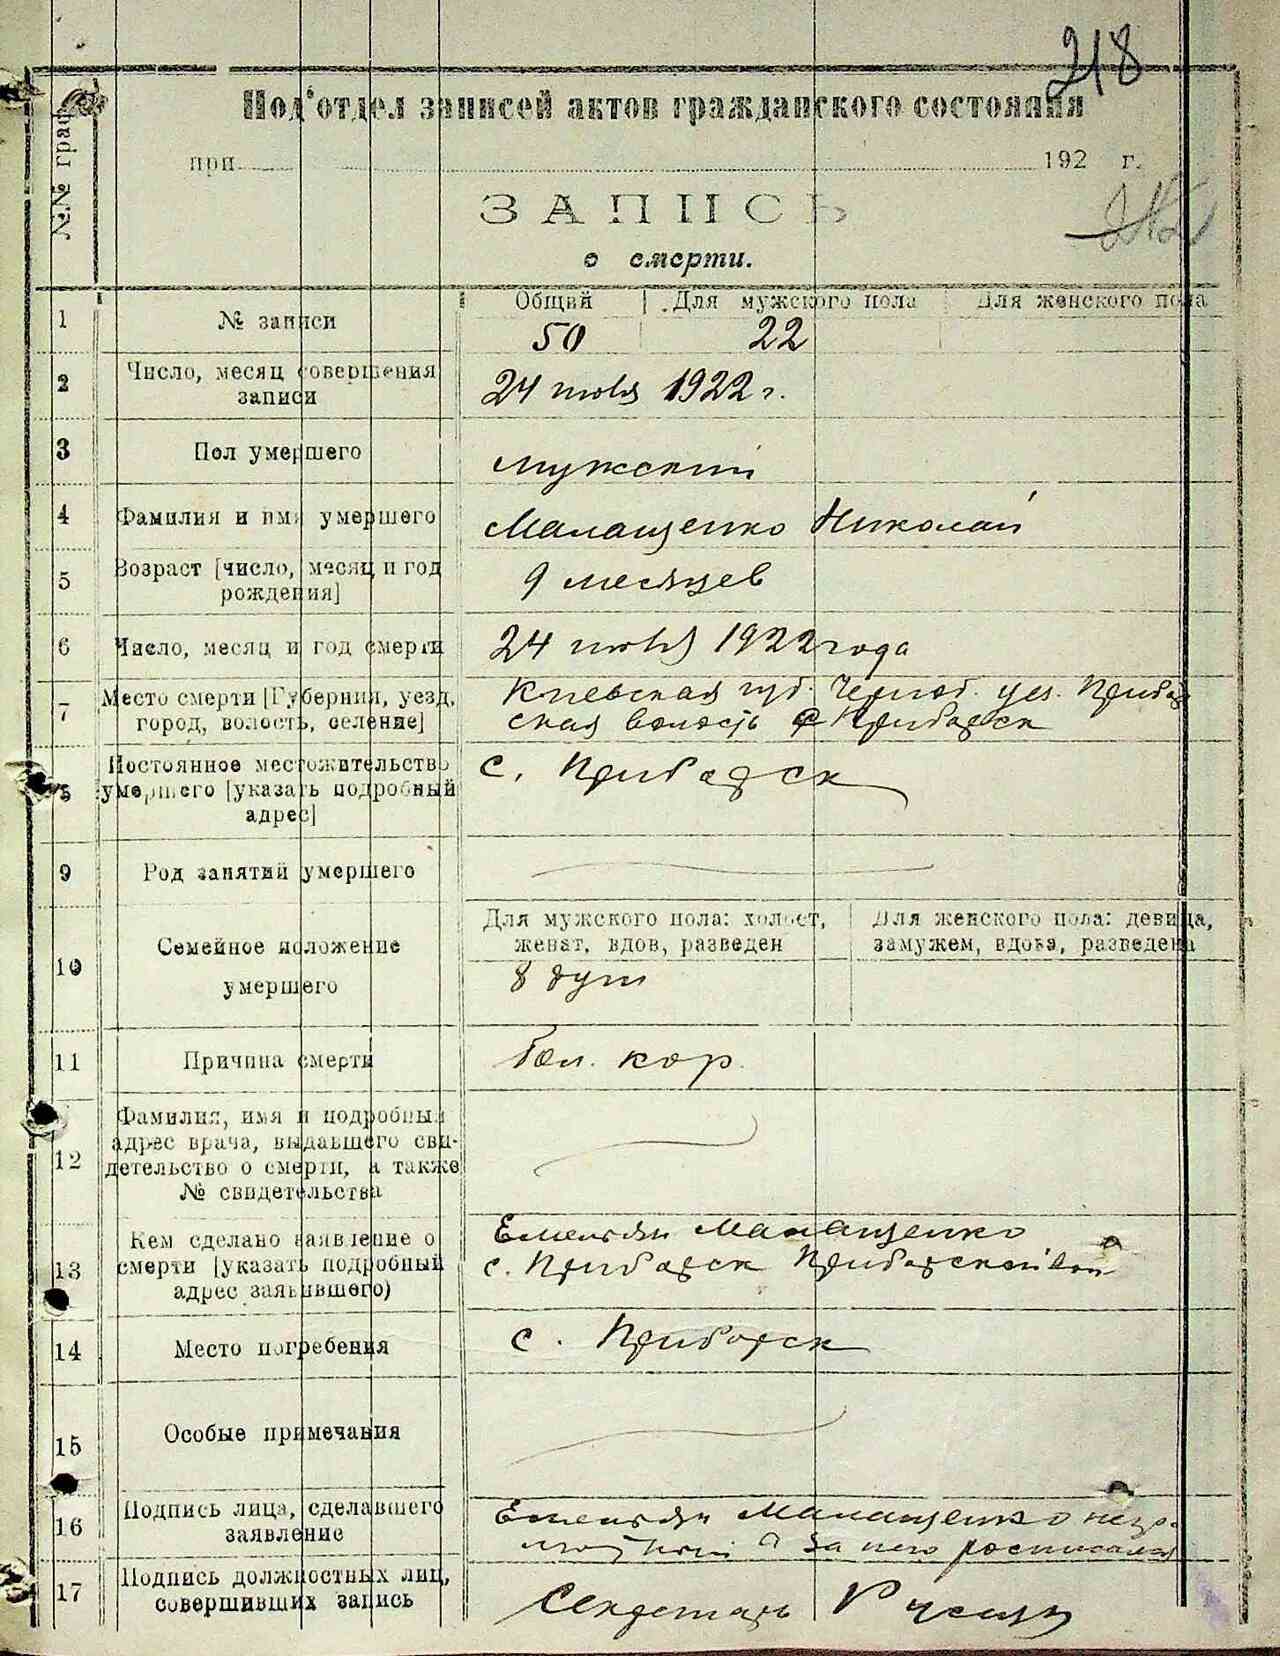 218
Под'отдел записей актов гражданского состояния
№№ граф
при 192 г.
ЗАПИСЬ
о смерти.
Общий Для мужского пола Для женского пола
1 № записи 50 22
2 Число, месяц совершения записи
24 июля 1922 г.
3 Пол умершего мужский
4 Фамилия и имя умершего Малащенко Николай
5 Возраст [число, месяц и год рождения]
9 месяцев
6 Число, месяц и год смерти 24 июля 1922 года
7 Место смерти [Губерния, уезд, город, волость, селение]
Киевская губ. Черноб. уез. Прибор
ская волость с Приборск
8 Постоянное местожительство умершего [указать подробный адрес]
с. Приборск
9 Род занятий умершего
10 Семейное положение умершего
Для мужского пола: холост, женат, вдов, разведен
Для женского пола: девица, замужем, вдова, разведена
8 душ
11 Причина смерти Бол. кор.
12 Фамилия, имя и подробный адрес врача, выдавшего сви-
детельство о смерти, а также № свидетельства
13 Кем сделано заявление о смерти [указать подробный адрес заявившего)
Емельян Малащенко
с. Приборск Приборской вол
14 Место погребения с. Приборск
15 Особые примечания
16 Подпись лица, сделавшего заявление
Емельян Малащенко негра-
мотный а за него росписался
17 Подпись должностных лиц, совершивших запись
Секретарь